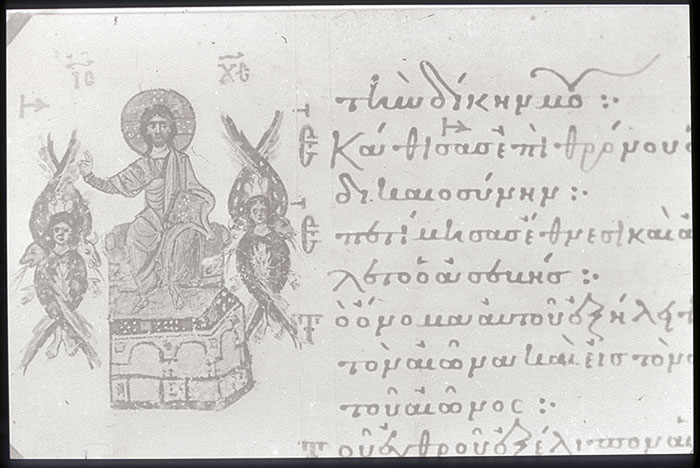 ΙC ΧC
τὴν δίκην μου :·
Ἐκάθισας ἐπὶ θρόνου ὁ
δικαιοσύνην :·
Ἐπετίμησας ἔθνεσι καὶ ἀ
λετο ὁ ἀσεβής :·
Τὸ ὄνομα αὐτοῦ ἐξήλει
τὸν αἰῶνα καὶ εἰς τὸν
τοῦ αἰῶνος :·
Τοῦ ἐχθροῦ ἐξέλιπον